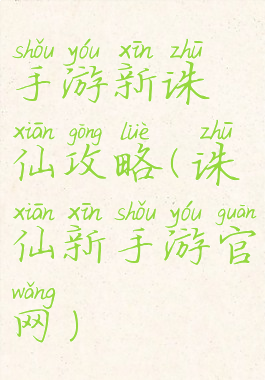 shǒu yóu xīn zhū
手游新诛
xiān gōng lüè zhū
仙攻略(诛
xiān xīn shǒu yóu guān
仙新手游官
wǎng
网)